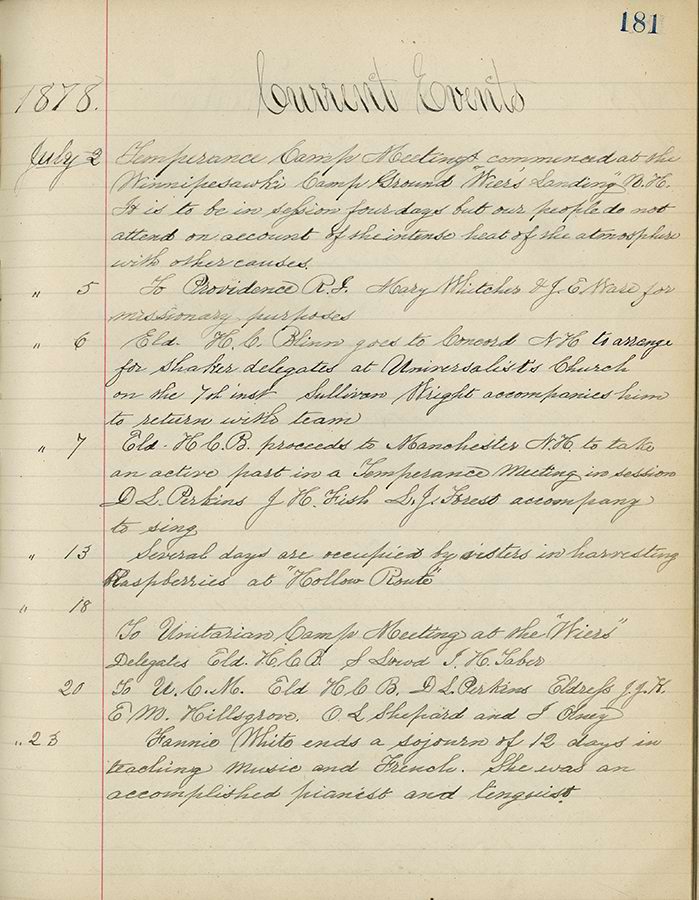 181
1878. Current Events
July 2 Temperance Camp Meeting commenced at the
Winnipesawki Camp Ground "Wier's Landing" N.H.
It is to be in session four days but our people do not
attend on account of the intense heat of the atmosphere
with other causes.
" 5 To Providence R.I. Mary Whitcher & J. E Ware for
missionary purposes
" 6 Eld. H. C. Blinn goes to Concord N.H to arrange
for Shaker delegates at Universalist's Church
on the 7th inst Sullivan Wright accompanies him
to return with team
" 7 Eld. H C. B. proceeds to Manchester N.H. to take
an active part in a Temperance Meeting in session
D L. Perkins J H. Fish L. J. Forest accompany
to sing
" 13 Several days are occupied by sisters in harvesting
Raspberries at "Hollow Route"
" 18
To Unitarian Camp Meeting at the "Wiers"
Delegates Eld. H. C B. S Lowd I. H. Taber
20 To U. C. M. Eld H C B. D L. Perkins Eldress J. J. K.
E M. Hillsgrove. O L Shepard and I
" 23 Fannie White ends a sojourn of 12 days in
teaching music and French. She was an
accomplished pianist and linguist.